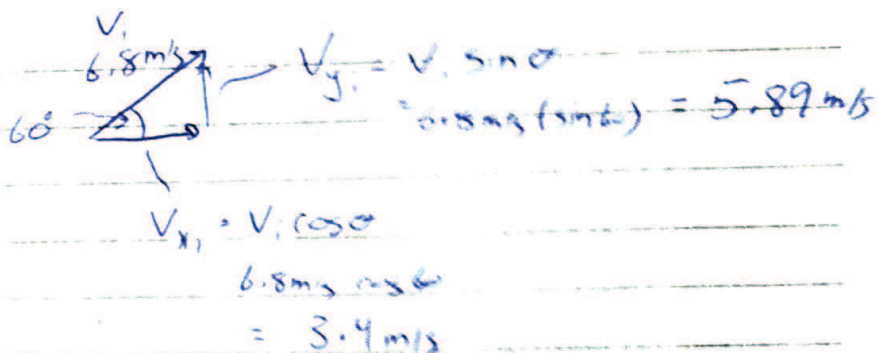 V₁
6.8 m/s
60°
Vy₁ = V₁ sin θ
= 6.8 m/s (sin 60) = 5.89 m/s
Vx₁ = V₁ cos θ
6.8 m/s cos 60
= 3.4 m/s